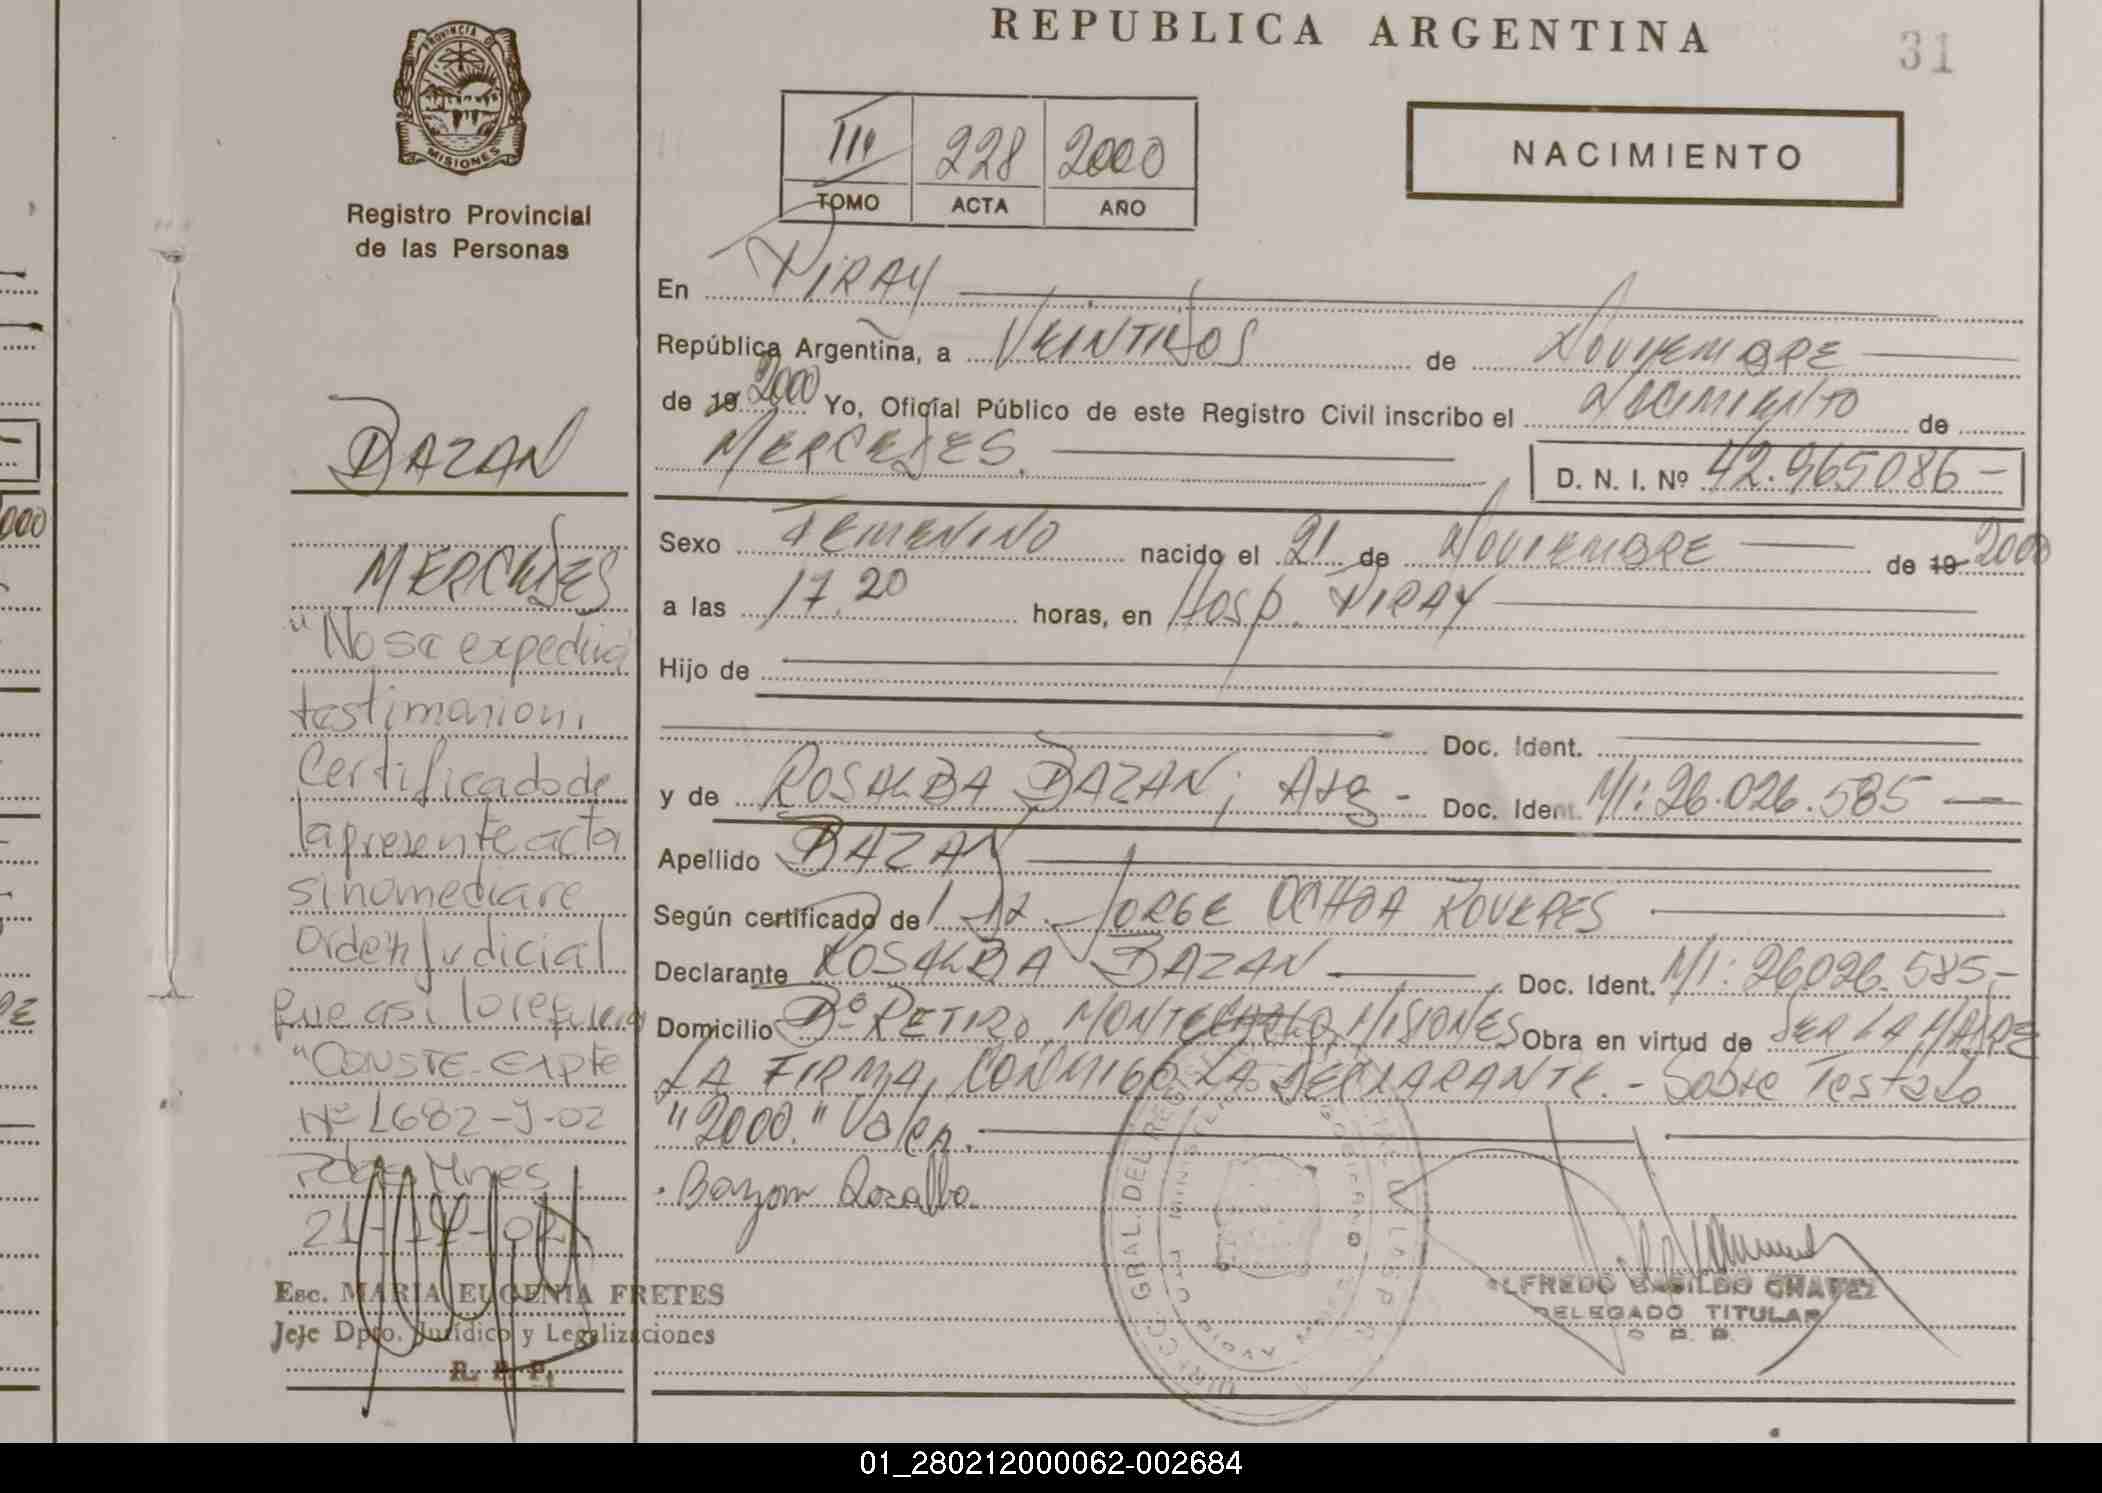 PROVINCIA DE
MISIONES
Registro Provincial
de las Personas
BAZAN
MERCEDES
"No se expedirá
testimonio ni
Certificado de
la presente acta
si no mediare
Orden Judicial
que asi lo requiera
"CONSTE- EXPTE
Nº 1682-J-02
Posadas Mnes
21-
Esc. MARIA EUGENIA FRETES
Jefe Dpto. Jurídico y Legalizaciones
R. P. P.
REPUBLICA ARGENTINA
31
III 228 2000
TOMO ACTA AÑO
NACIMIENTO
En PIRAY
República Argentina, a VEINTIDOS de NOVIEMBRE
de 19 2000 Yo, Oficial Público de este Registro Civil inscribo el NACIMIENTO de
MERCEDES. D. N. I. Nº 42.965086-
Sexo FEMENINO nacido el 21 de NOVIEMBRE de 19 2000
a las 17.20 horas, en Hosp. PIRAY
Hijo de
Doc. Ident.
y de ROSALBA BAZAN; Arg - Doc. Ident. MI: 26.026.585
Apellido BAZAN
Según certificado de JORGE OCHOA ROVERES
Declarante ROSALBA BAZAN Doc. Ident. MI: 26026.585-
Domicilio Bº RETIRO, MONTECARLO, MISIONES Obra en virtud de SER LA MADRE
LA FIRMA, CONMIGO LA DECLARANTE. - Sobre Testado
"2000." Vale.
Bazan Rosalba
ALFREDO BASILDO CHAVEZ
DELEGADO TITULAR
01_280212000062-002684